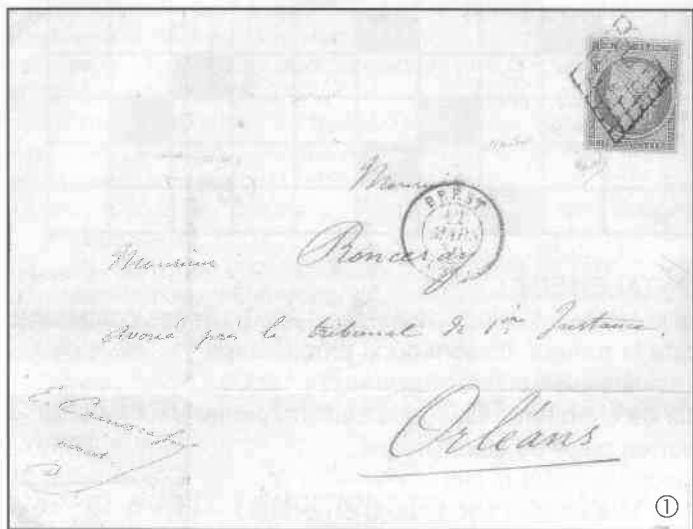 Monsieur
BREST
12
Monsieur
Ronceray
avoué près le tribunal de 1ère Instance.
Orléans
à
①